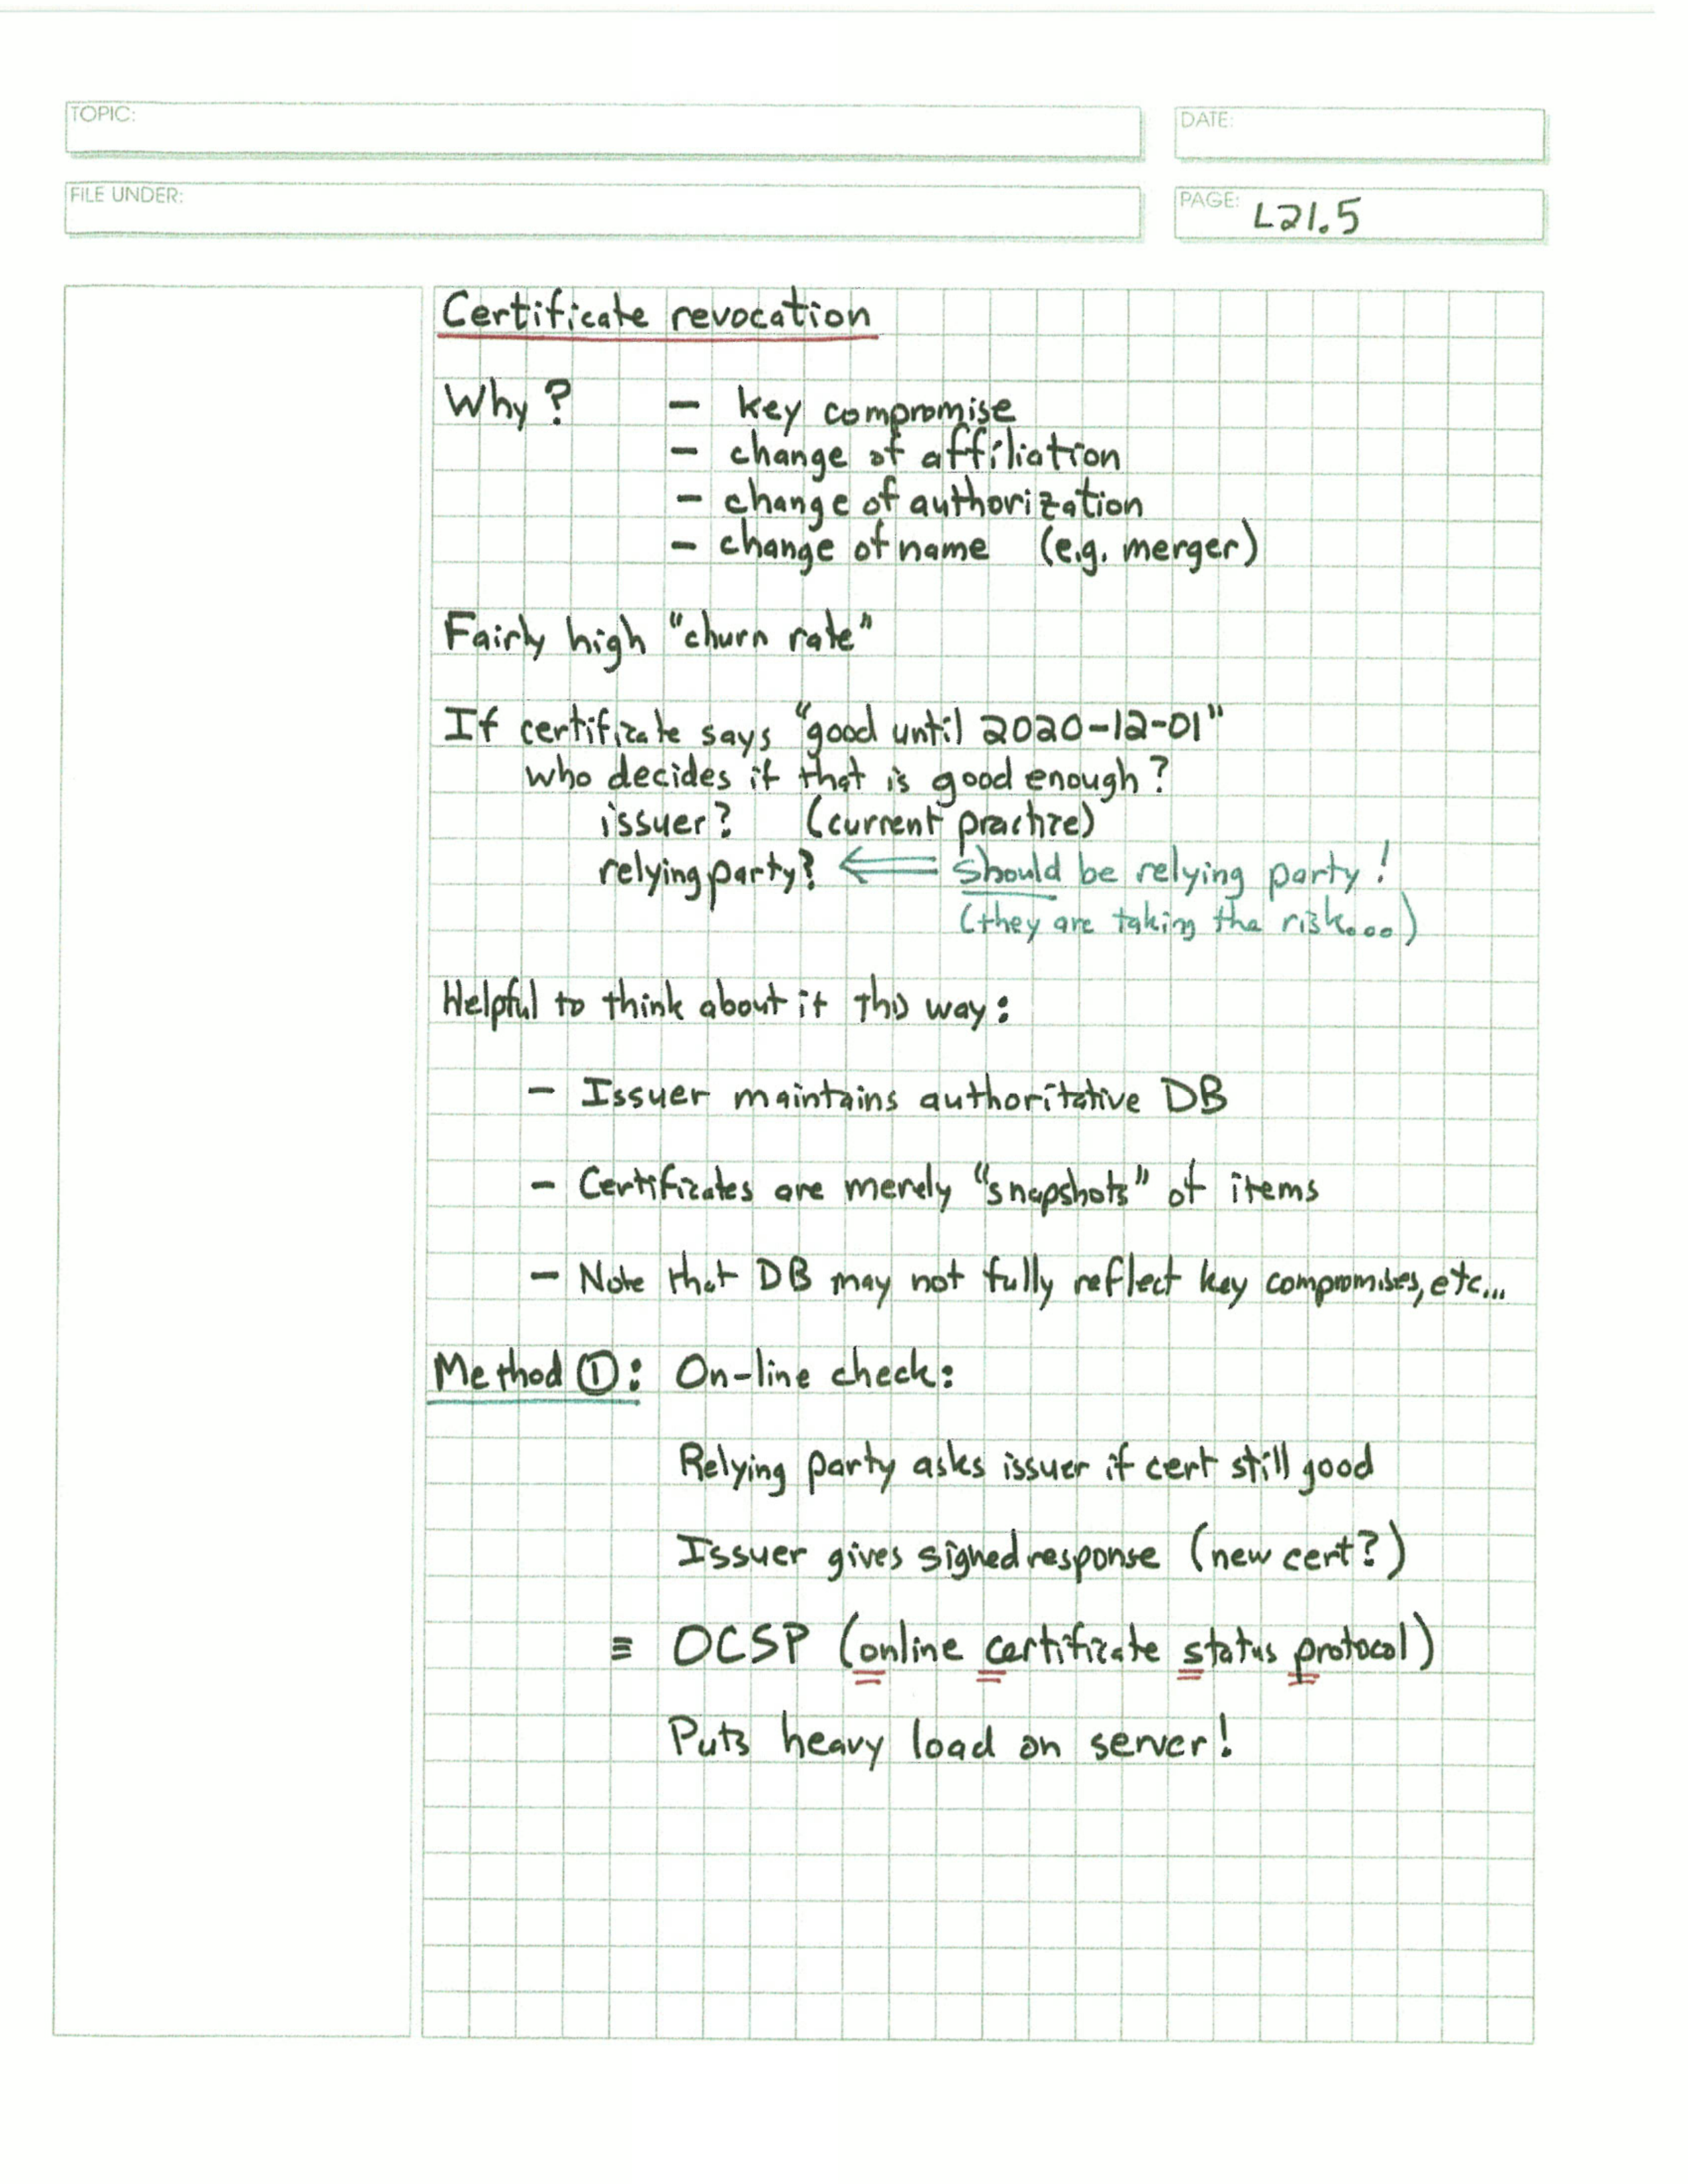 TOPIC:
DATE:
FILE UNDER:
PAGE: L21.5
Certificate revocation
Why? — key compromise
— change of affiliation
— change of authorization
— change of name (e.g. merger)
Fairly high "churn rate"
If certificate says "good until 2020-12-01"
who decides if that is good enough?
issuer? (current practice)
relying party? ⟸ should be relying party!
(they are taking the risk....)
Helpful to think about it this way:
— Issuer maintains authoritative DB
— Certificates are merely "snapshots" of items
— Note that DB may not fully reflect key compromises, etc...
Method ①: On-line check:
Relying party asks issuer if cert still good
Issuer gives signed response (new cert?)
≡ OCSP (online certificate status protocol)
Puts heavy load on server!